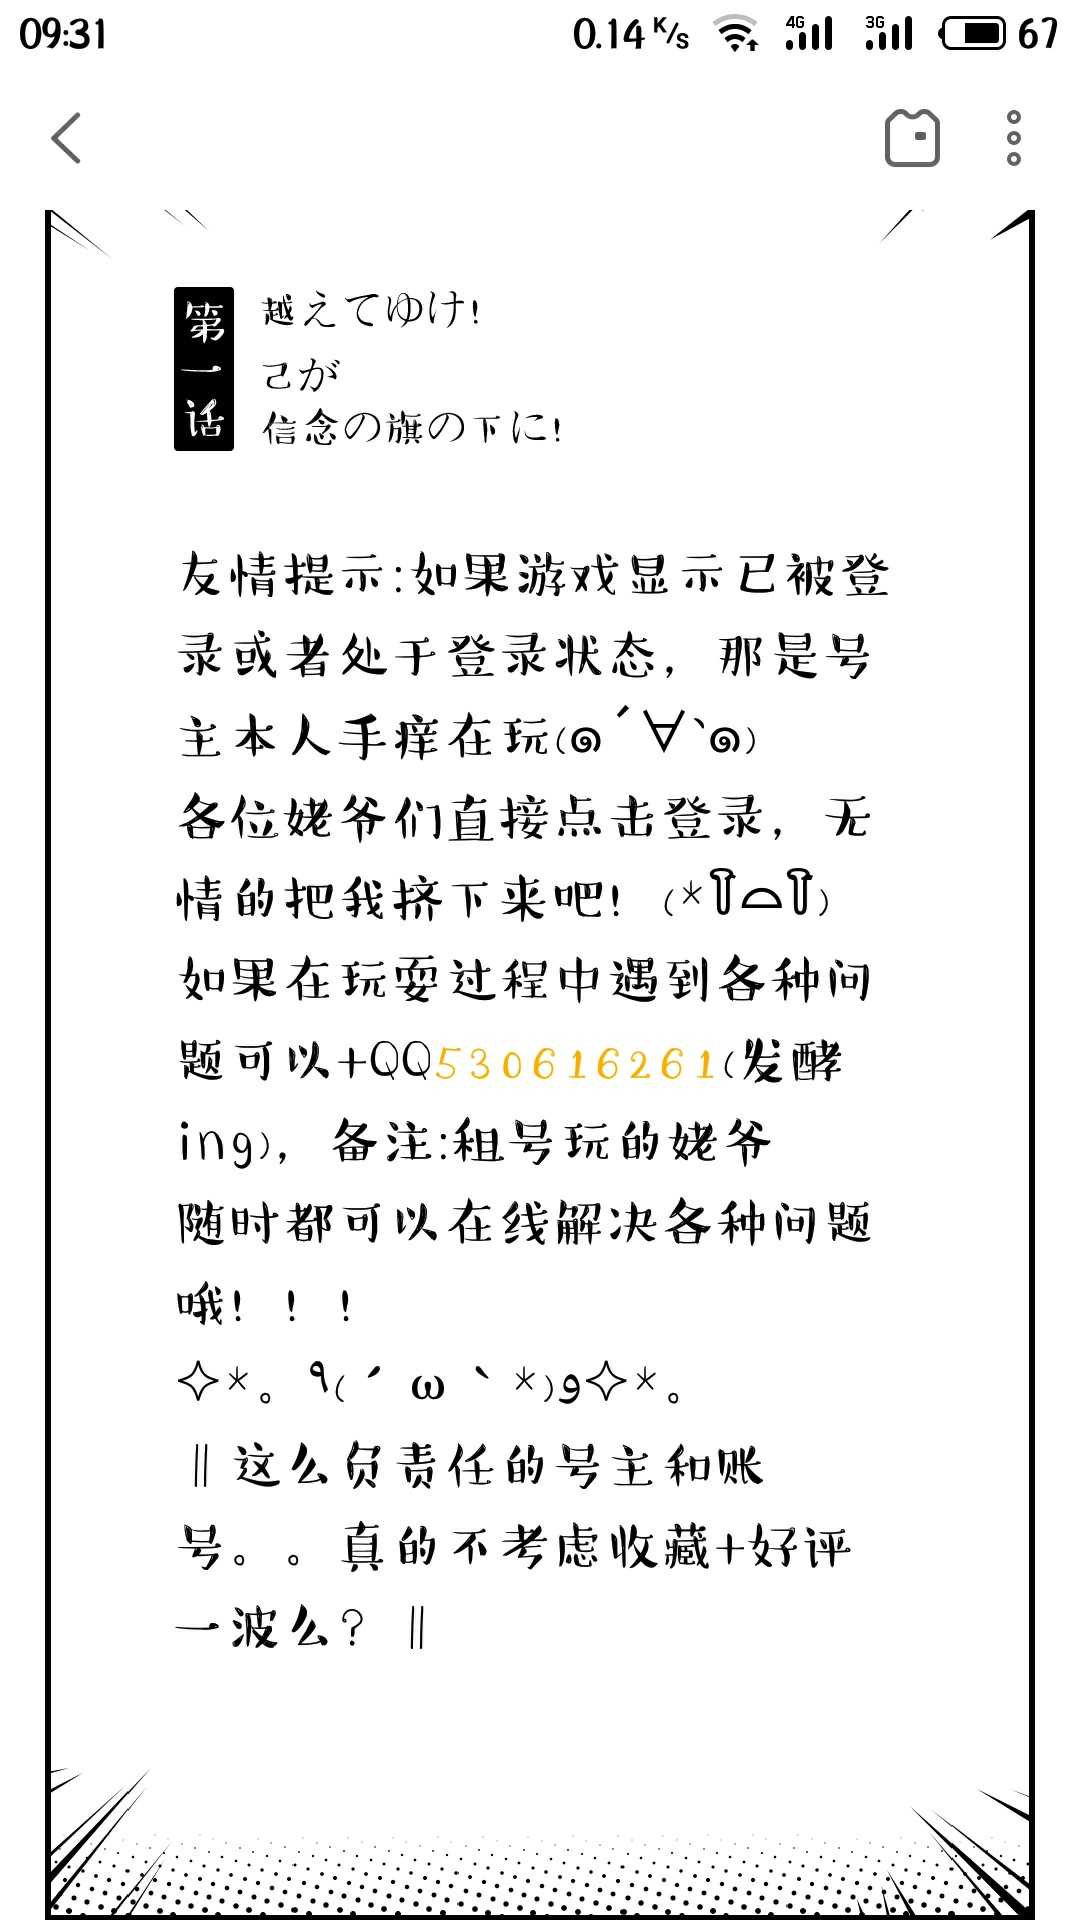 09:31 0.14 K/s 4G 3G 67
第一话
越えてゆけ!
己が
信念の旗の下に!
友情提示:如果游戏显示已被登
录或者处于登录状态，那是号
主本人手痒在玩(๑ˊ∀ˋ๑)
各位姥爷们直接点击登录，无
情的把我挤下来吧! (*T⌓T)
如果在玩耍过程中遇到各种问
题可以+QQ530616261(发酵
ing)，备注:租号玩的姥爷
随时都可以在线解决各种问题
哦! ! !
✧*。٩(ˊωˋ*)و✧*。
‖这么负责任的号主和账
号。。真的不考虑收藏+好评
一波么? ‖